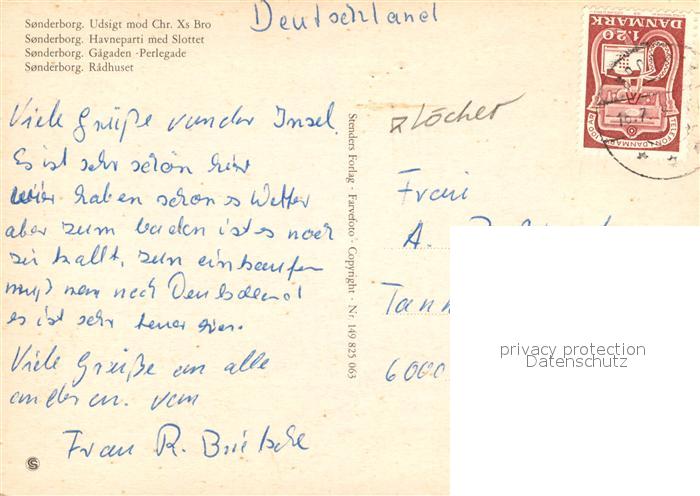 Deutschland
Sønderborg. Udsigt mod Chr. Xs Bro
Sønderborg. Havneparti med Slottet
Sønderborg. Gågaden - Perlegade
Sønderborg. Rådhuset
Viele Grüße von der Insel.
Es ist sehr schön hier
wir haben schönes Wetter
aber zum baden ist es noch
zu kallt, zum einkaufen
muß man nach Deutschland
es ist sehr teuer hier.
Viele Grüße an alle
anderen. von
Frau R.
Stenders Forlag - Farvefoto - Copyright - Nr. 149 825 063
Löcher
DANMARK
1.20
TELEFON I DANMARK 100 ÅR
Frau
A.
Tann
6000
privacy protection
Datenschutz
S